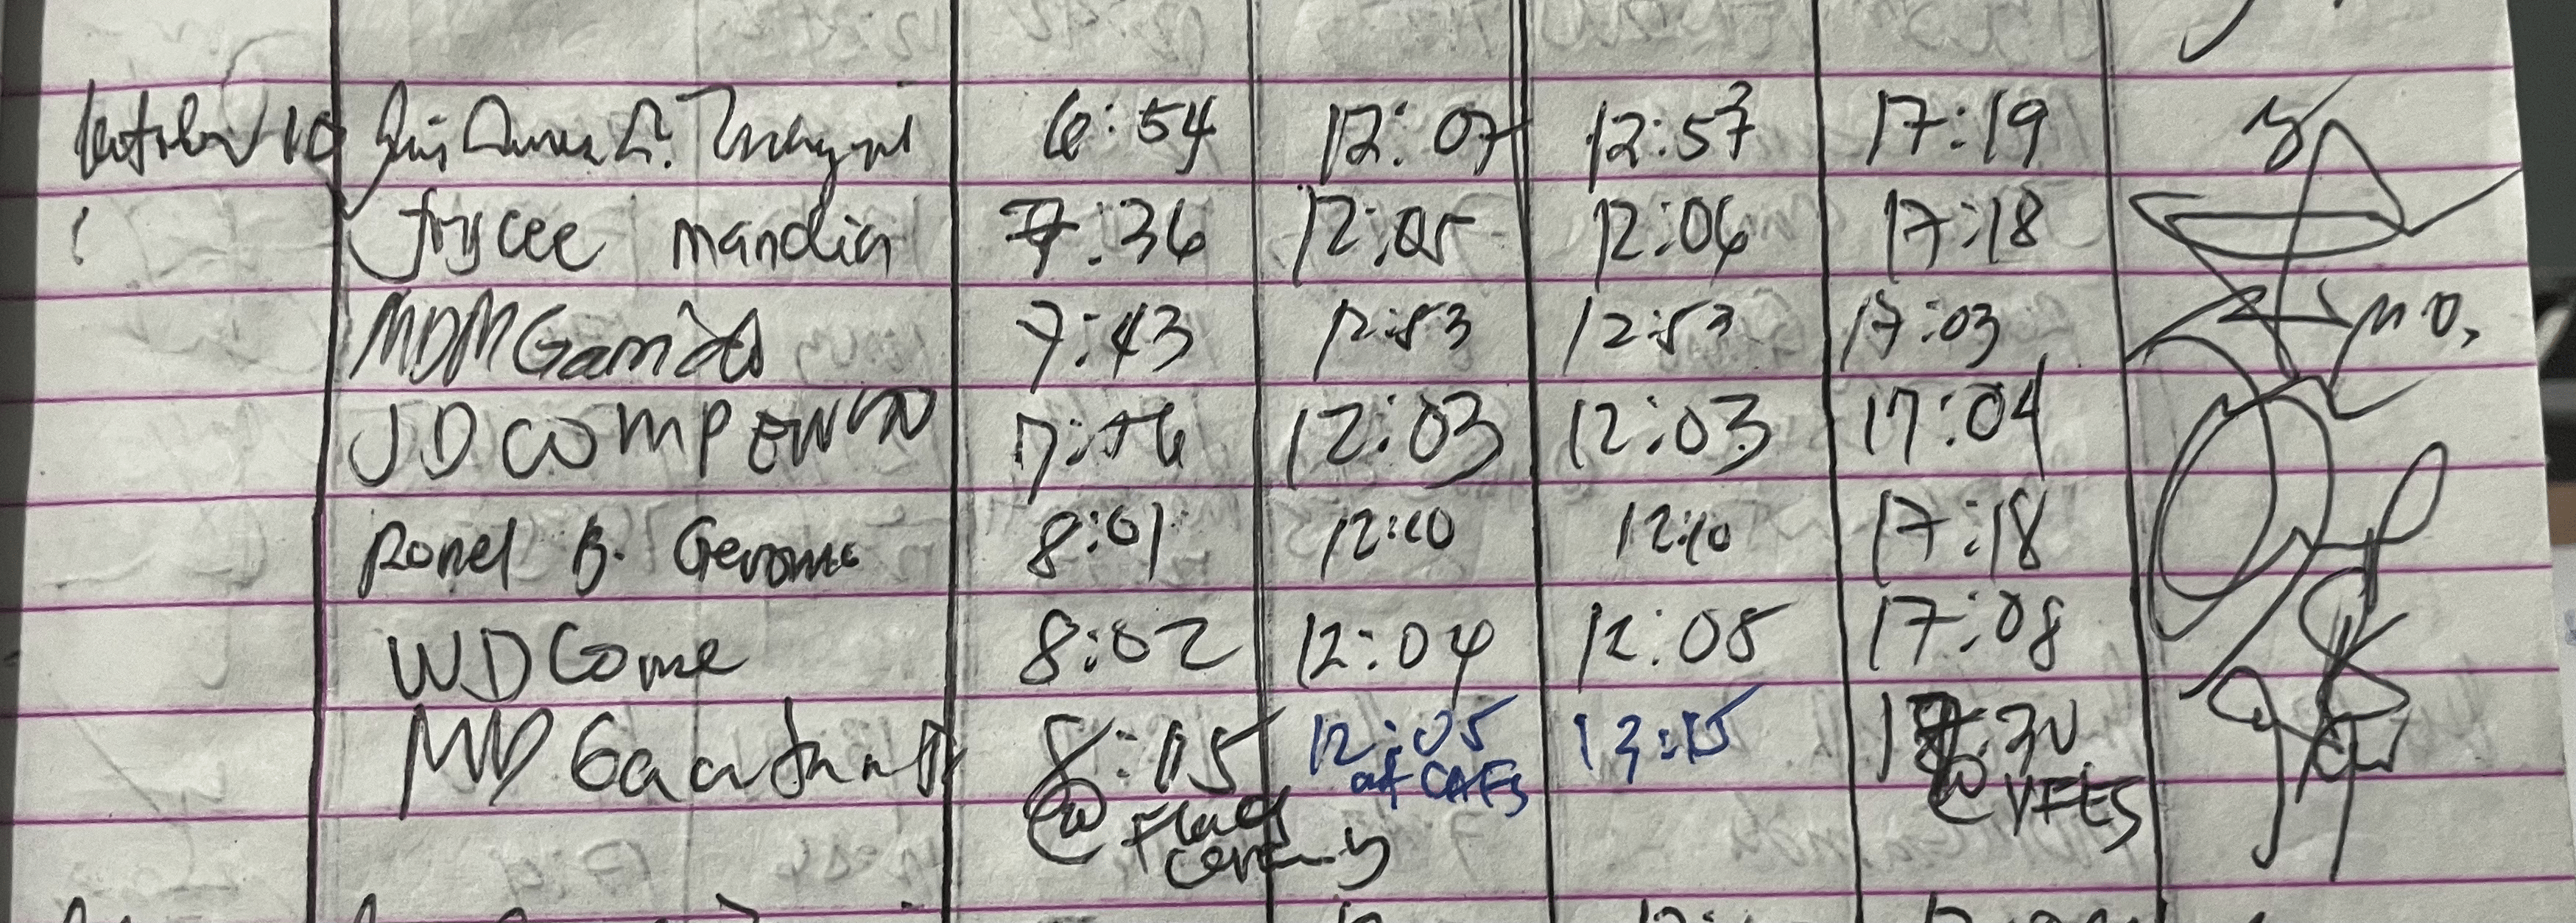 October 10 6:54 12:07 12:57 17:19
Joycee Mandia 7:36 12:05 12:06 17:18
MDMGarrido 7:43 12:53 12:53 17:03
JD 7:56 12:03 12:03 17:04
Ronel B. Geronimo 8:01 12:10 12:10 17:18
WD Come 8:02 12:04 12:05 17:08
MD 8:05 12:05 13:15 17:30
@ Flag at CAFS @ VFES
Ceremony